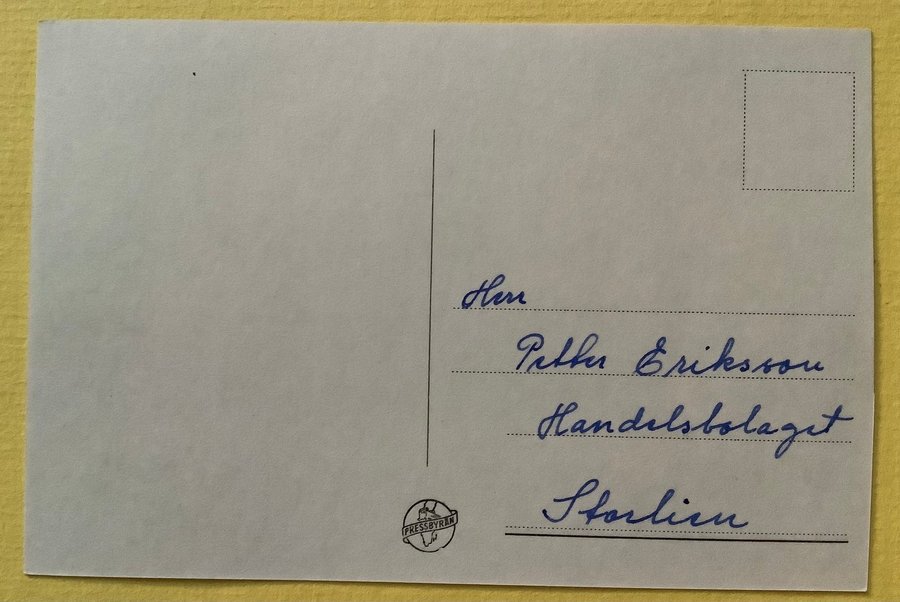 Herr
Petter Eriksson
Handelsbolaget
Storlien
PRESSBYRÅN